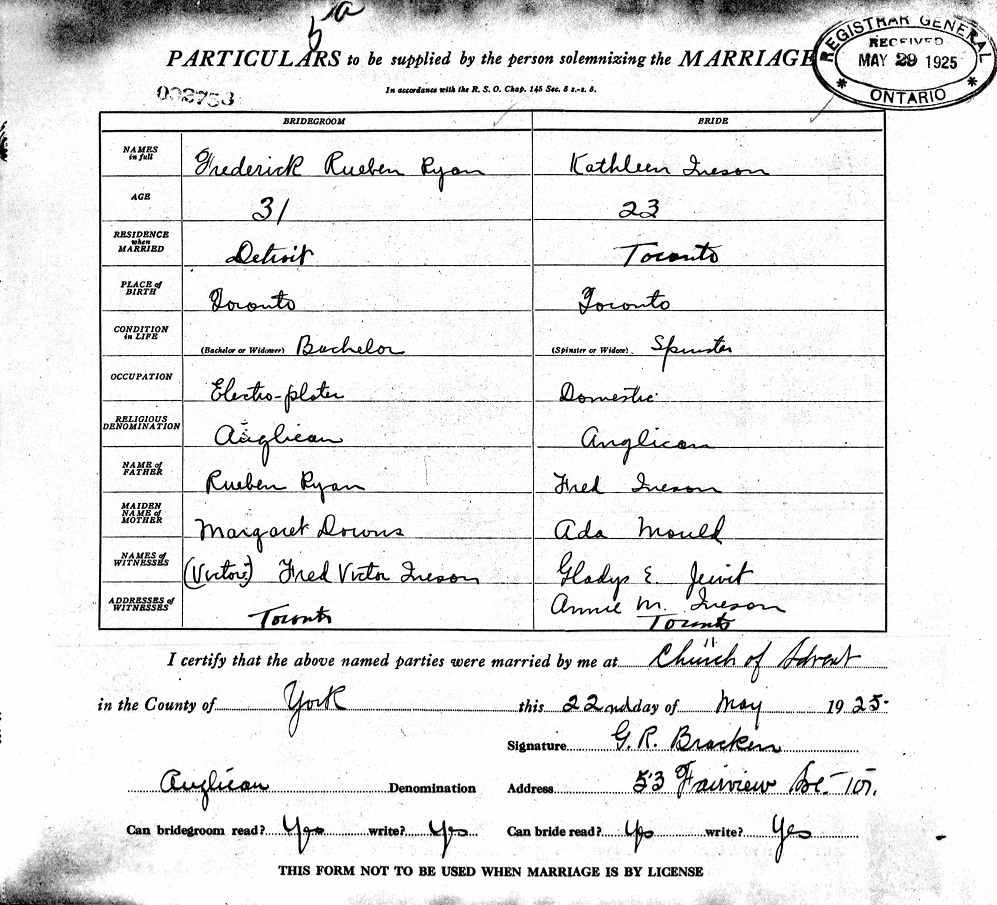 5a
PARTICULARS to be supplied by the person solemnizing the MARRIAGE
REGISTRAR GENERAL
RECEIVED
MAY 29 1925
ONTARIO
In accordance with the R. S. O. Chap. 146 Sec. 8 s.-s. 8.
002753
BRIDEGROOM BRIDE
NAMES in full Frederick Rueben Ryan Kathleen Ineson
AGE 31 23
RESIDENCE when MARRIED Detroit Toronto
PLACE of BIRTH Toronto Toronto
CONDITION in LIFE (Bachelor or Widower) Bachelor (Spinster or Widow) Spinster
OCCUPATION Electro-plater Domestic
RELIGIOUS DENOMINATION Anglican Anglican
NAME of FATHER Rueben Ryan Fred Ineson
MAIDEN NAME of MOTHER Margaret Downs Ada Mould
NAMES of WITNESSES Fred Victor Ineson Gladys E.
Annie M. Ineson
ADDRESSES of WITNESSES Toronto Toronto
I certify that the above named parties were married by me at Church of Advent
in the County of York this 22nd day of May 1925
Signature G. R. Bracken
Anglican Denomination Address 53 Fairview Ave. Tor.
Can bridegroom read? Yes write? Yes Can bride read? Yes write? Yes
THIS FORM NOT TO BE USED WHEN MARRIAGE IS BY LICENSE